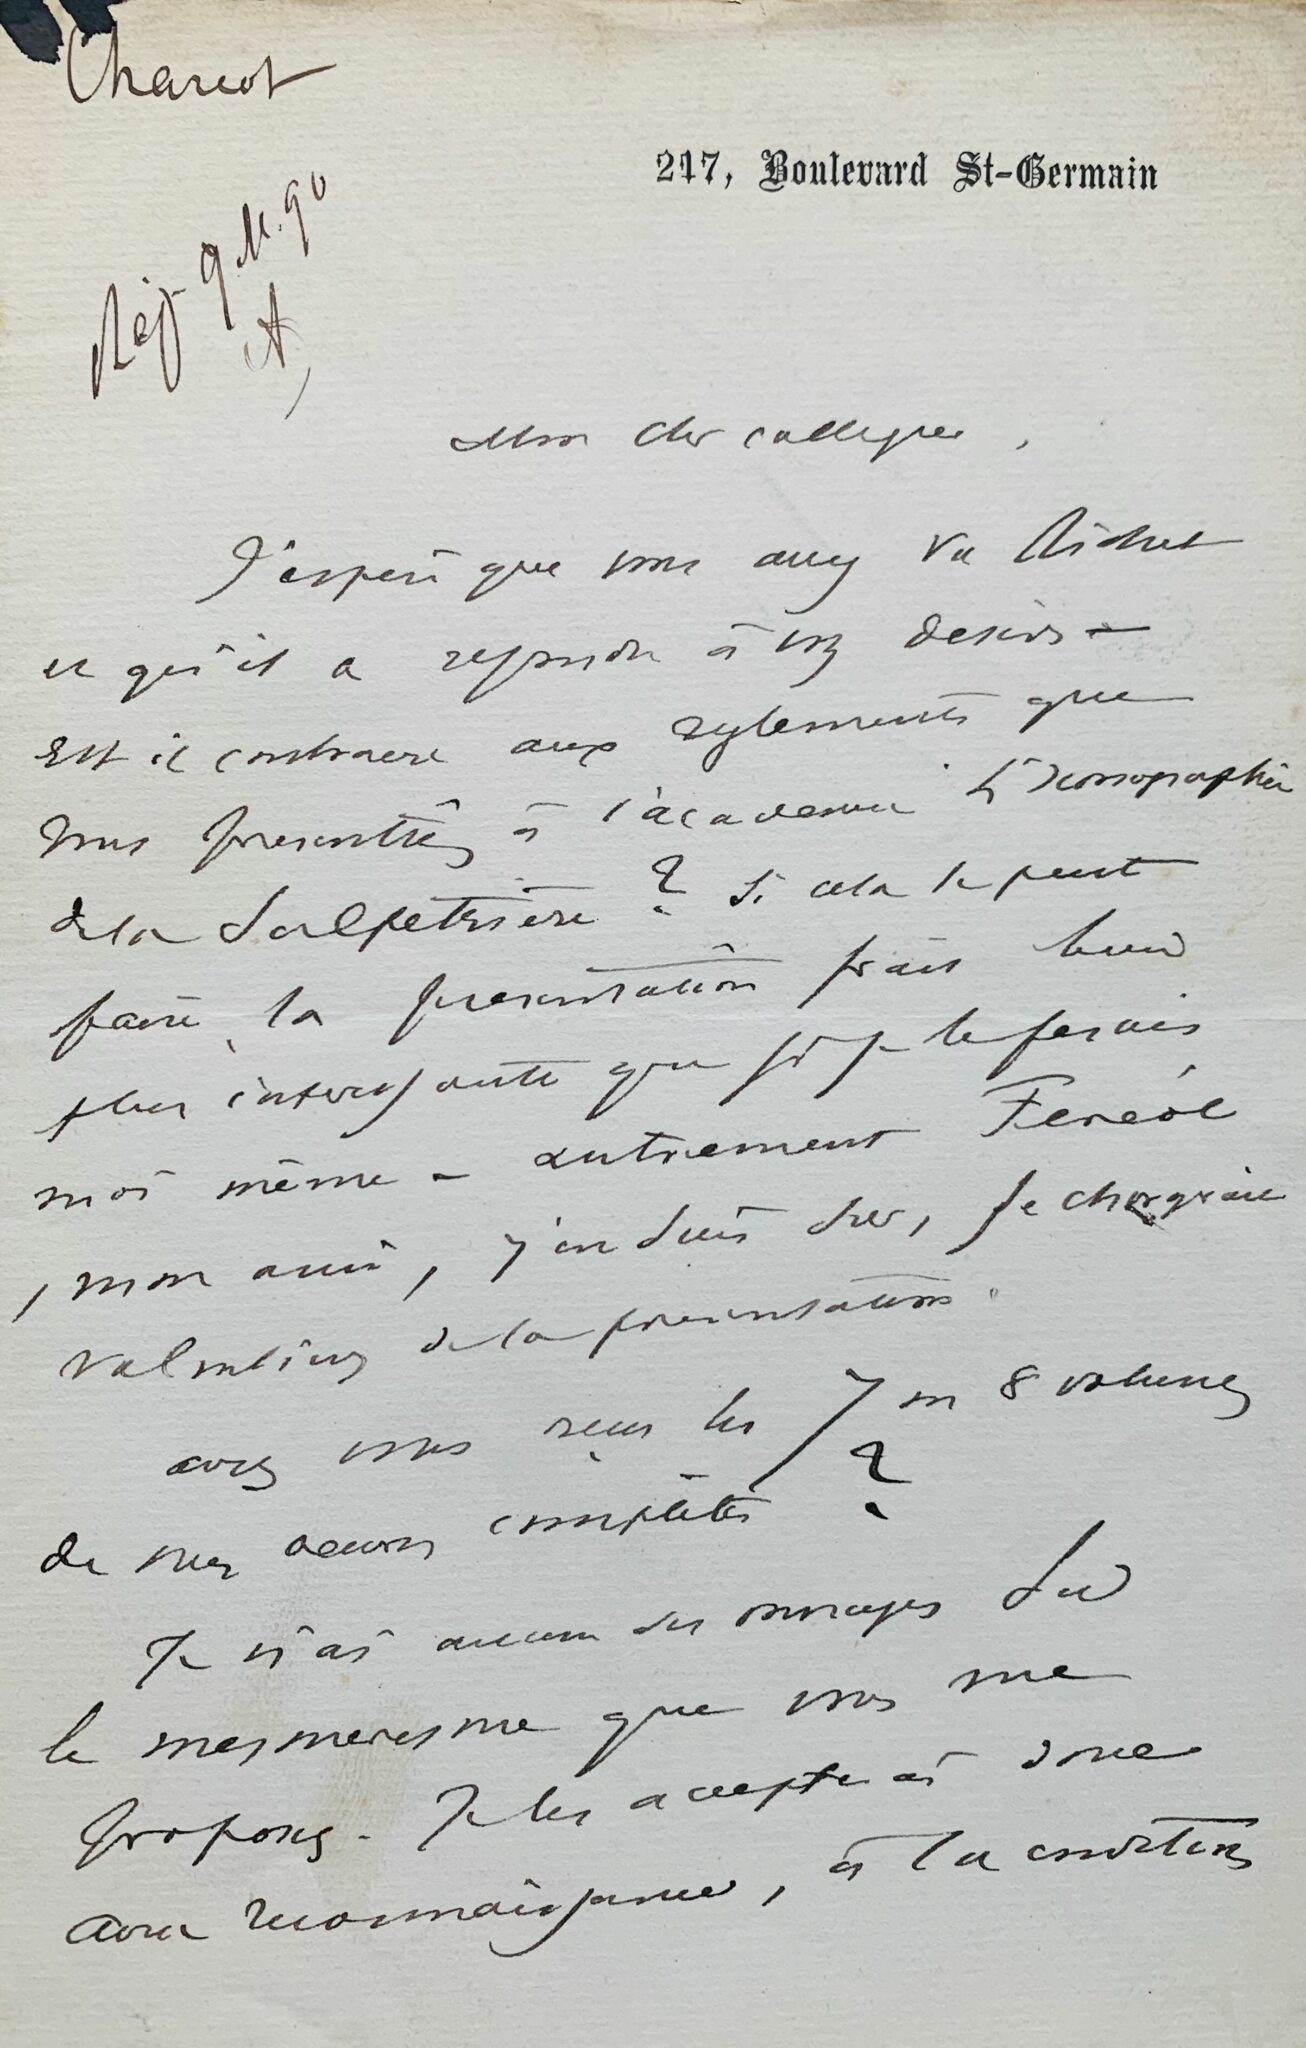 Charcot
217, Boulevard St-Germain
Rép 9. M. 90
A
Mon cher collegue,
J'espère que vous avez vu Richet
et qu'il a repondu à vos desirs —
Est il contraire aux reglements que
vous presentiez à l'academie L'Iconographie
de la Salpetrière ? Si cela se peut
faire, la presentation faite
plus interessante que si je le ferais
moi même — autrement Fereol
, mon ami, j'en suis sûr, se chargerait
volontiers de la presentation.
avez vous reçu les 7 in 8 volumes
de mes oeuvres complètes ?
Je n'ai aucun des ouvrages sur
le mesmerisme que vous me
proposez. Je les accepterai donc
avec reconnaissance, à la condition